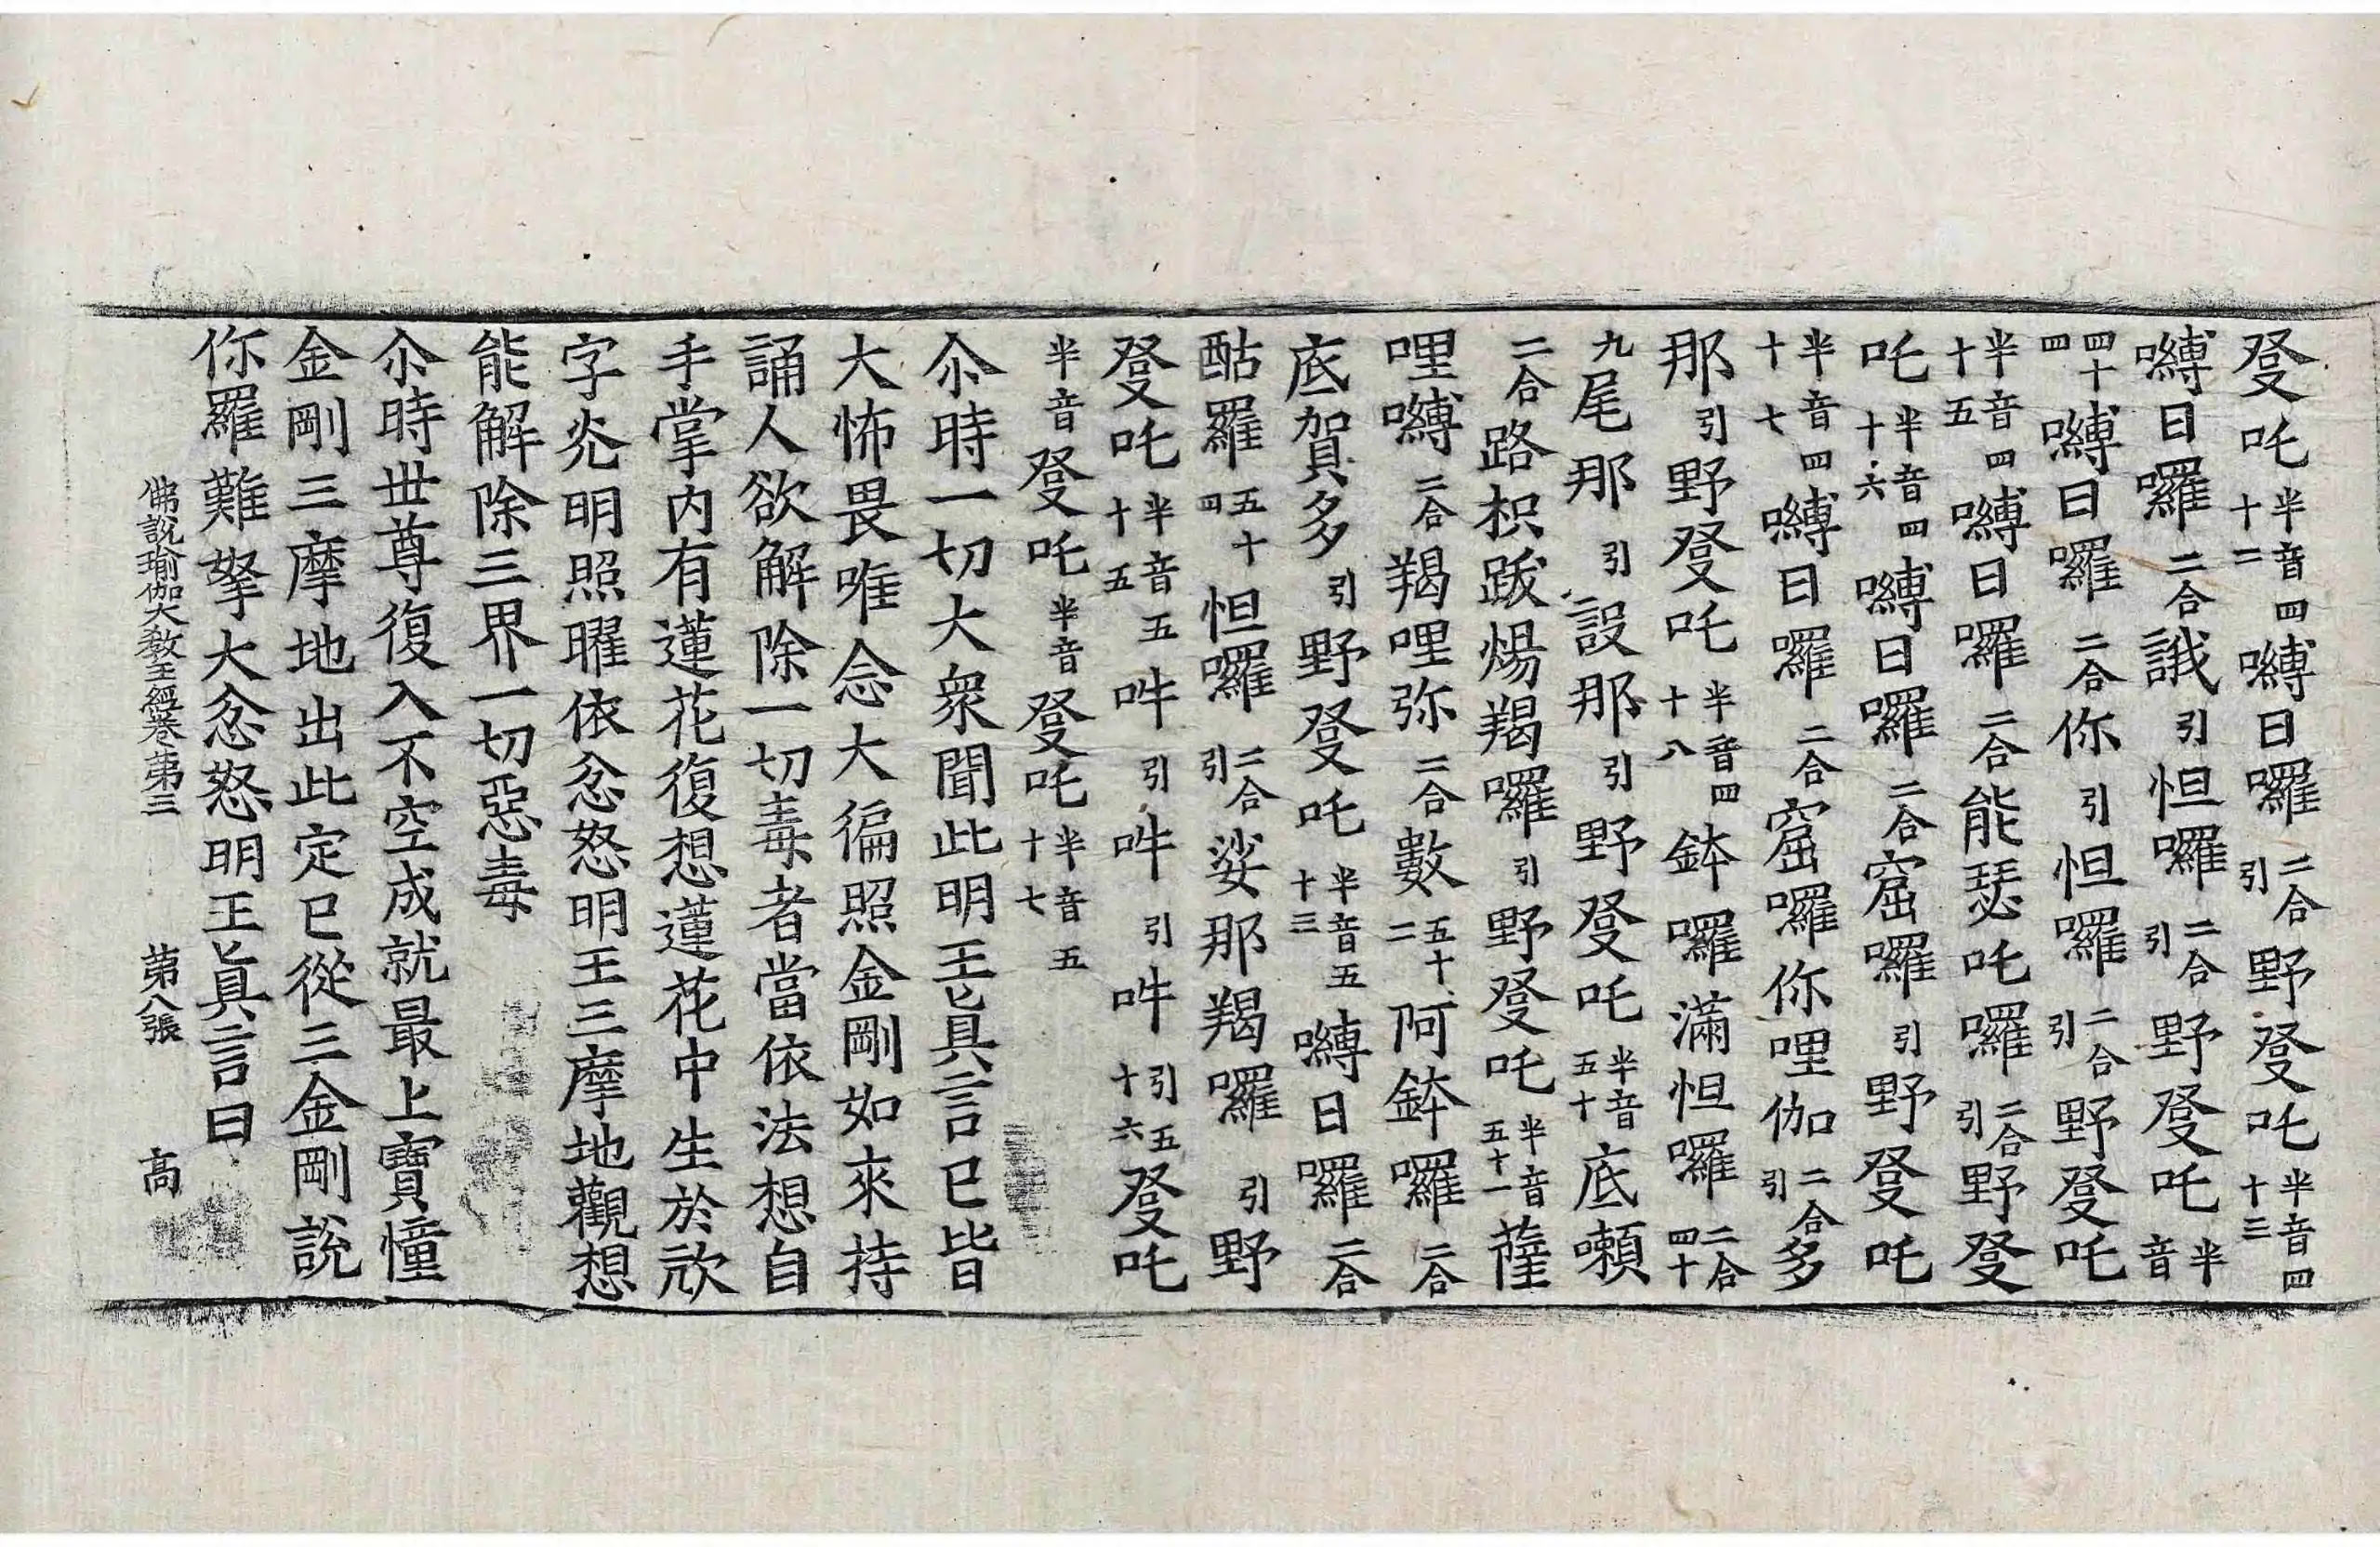 癹吒半音四十二嚩日囉二合引野癹吒半音四十三
嚩日囉二合誐引怛囉二合引野癹吒半音
四十四嚩日囉二合你引怛囉二合引野癹吒
半音四十五嚩日囉二合能瑟吒囉二合引野癹
吒半音四十六嚩日囉二合窟囉引野癹吒
半音四十七嚩日囉二合窟囉你哩伽二合引多
那引野癹吒半音四十八鉢囉滿怛囉二合四十
九尾那引設那引野癹吒半音五十底嚩
二合路枳跋煬羯囉引野癹吒半音五十一薩
哩嚩二合羯哩弥二合數五十二阿鉢囉二合
底賀多引野癹吒半音五十三嚩日囉二合
酤羅五十四怛囉二合引娑那羯囉引野
癹吒半音五十五吽引吽引吽引五十六癹吒
半音癹吒半音癹吒半音五十七
尒時一切大衆聞此明王眞言已皆
大怖畏唯念大徧照金剛如來持
誦人欲解除一切毒者當依法想自
手掌内有蓮花復想蓮花中生於㰠
字光明照曜依忿怒明王三摩地觀想
能解除三界一切惡毒
尒時世尊復入不空成就最上寶憧
金剛三摩地出此定已從三金剛說
你羅難拏大忿怒明王眞言曰
佛說瑜伽大教王經卷第三 第八張 高